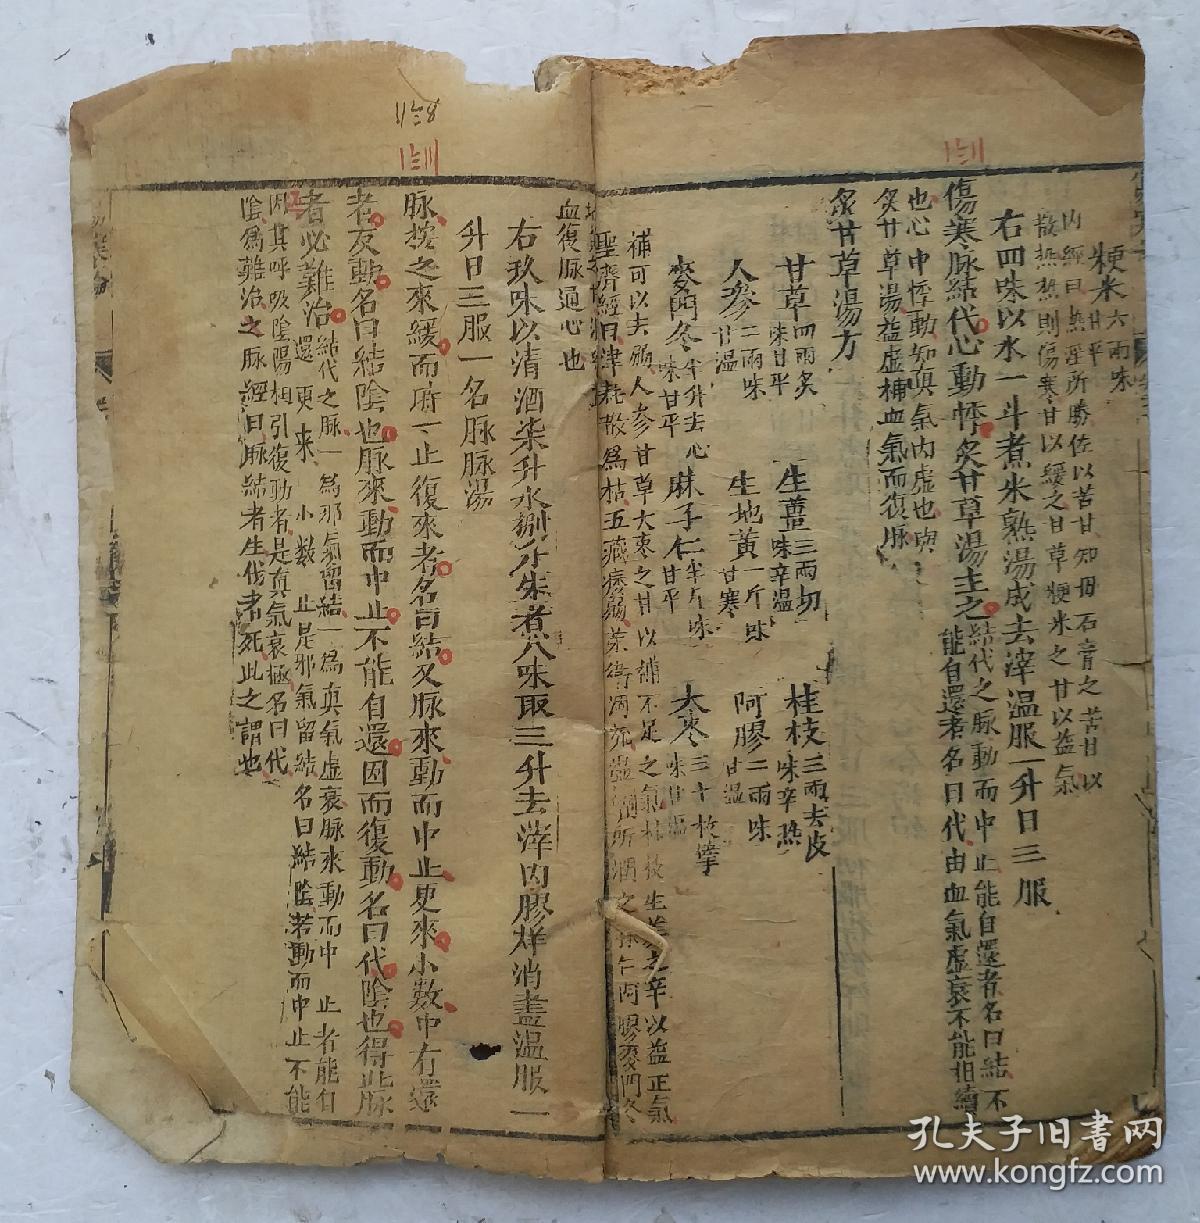 粳米六兩味
甘平
內經曰熱淫所勝佐以苦甘知母石膏之苦甘以
散熱熱則傷氣甘以緩之甘草粳米之甘以益氣
右四味以水一斗煮米熟湯成去滓溫服一升日三服
傷寒脉結代心動悸炙甘草湯主之
結代之脉動而中止能自還者名曰結不
能自還者名曰代由血氣虛衰不能相續
也心中悸動知眞氣內虛也與
炙甘草湯益虛補血氣而復脉
炙甘草湯方
甘草四兩炙味甘平 生薑三兩切味辛溫 桂枝三兩去皮味辛熱
人參二兩味甘溫 生地黃一斤味甘寒 阿膠二兩味甘溫
麥門冬半升去心味甘平 麻子仁半斤味甘平 大棗三十枚擘味甘溫
補可以去弱人參甘草大棗之甘以補不足之氣桂枝生薑之辛以益正氣
聖濟經曰津耗散爲枯五藏痿弱榮衛涸流 所 潤之麻仁阿膠麥門冬
血復脉通心也
右玖味以清酒柒升水捌升先煮八味取三升去滓內膠烊消盡溫服一
升日三服一名脉脉湯
脉按之來緩而時一止復來者名曰結又脉來動而中止更來小數中有還
者反動名曰結陰也脉來動而中止不能自還因而復動名曰代陰也得此脉
者必難治
結代之脉一爲邪氣留結一爲眞氣虛衰脉來動而中止者能自
還更來小數止是邪氣留結名曰結陰若動而中止不能
因其呼吸陰陽相引復動者是眞氣衰極名曰代
陰爲難治之脉經曰脉結者生代者死此之謂也
孔夫子旧书网
www.kongfz.com